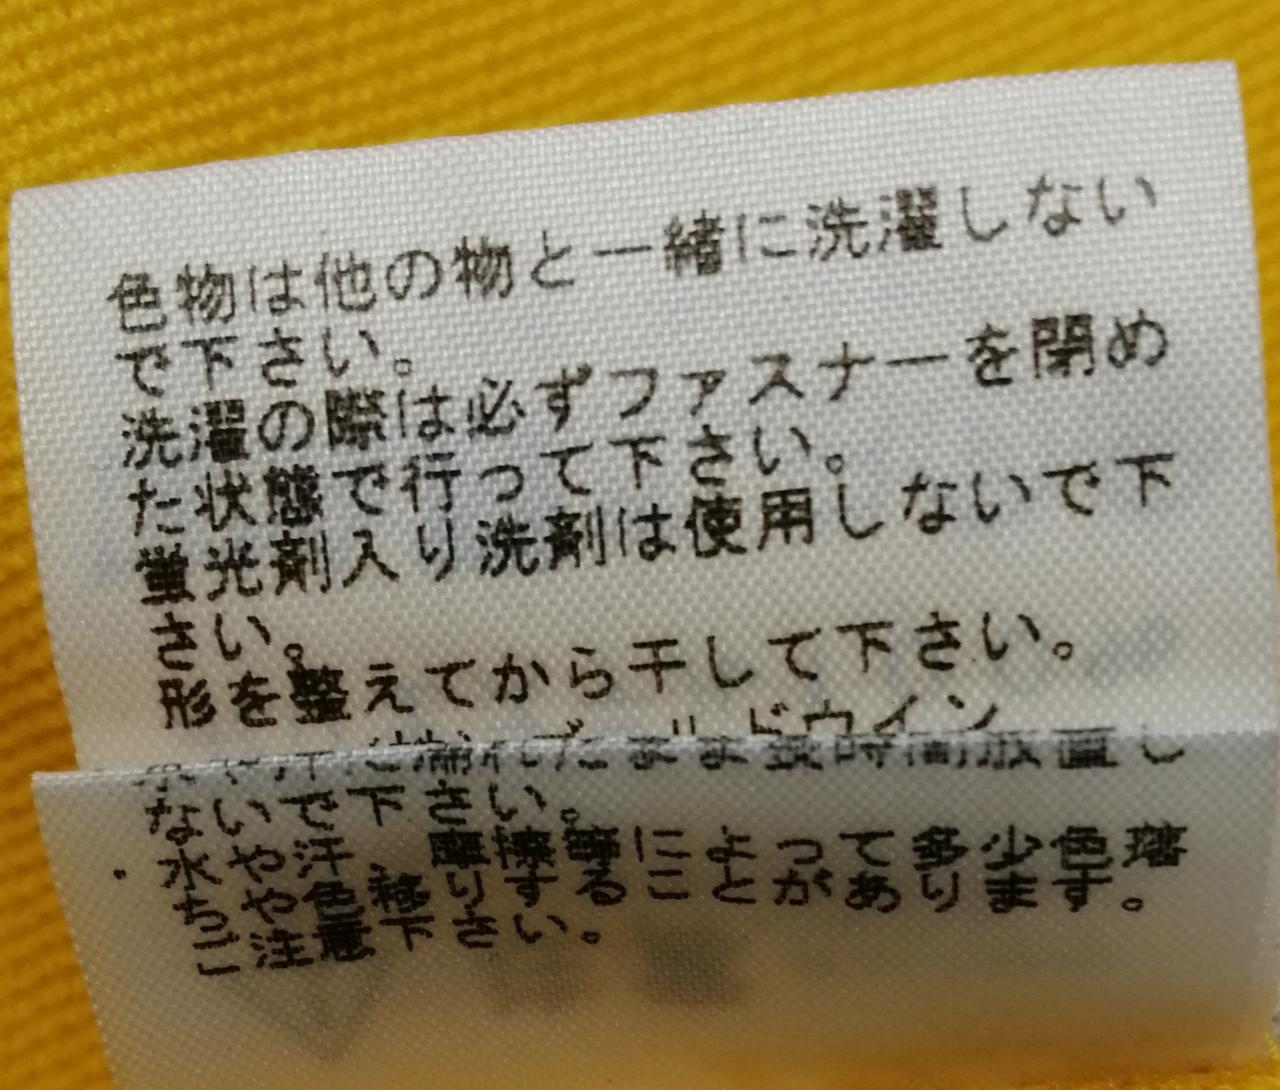 色物は他の物と一緒に洗濯しない
で下さい。
洗濯の際は必ずファスナーを閉め
た状態で行って下さい。
蛍光剤入り洗剤は使用しないで下
さい。
形を整えてから干して下さい。
ールドウイン
水や汗に濡れたまま長時間放置し
ないで下さい。
水や汗、摩擦等によって多少色落
ちや色移りすることがあります。
ご注意下さい。